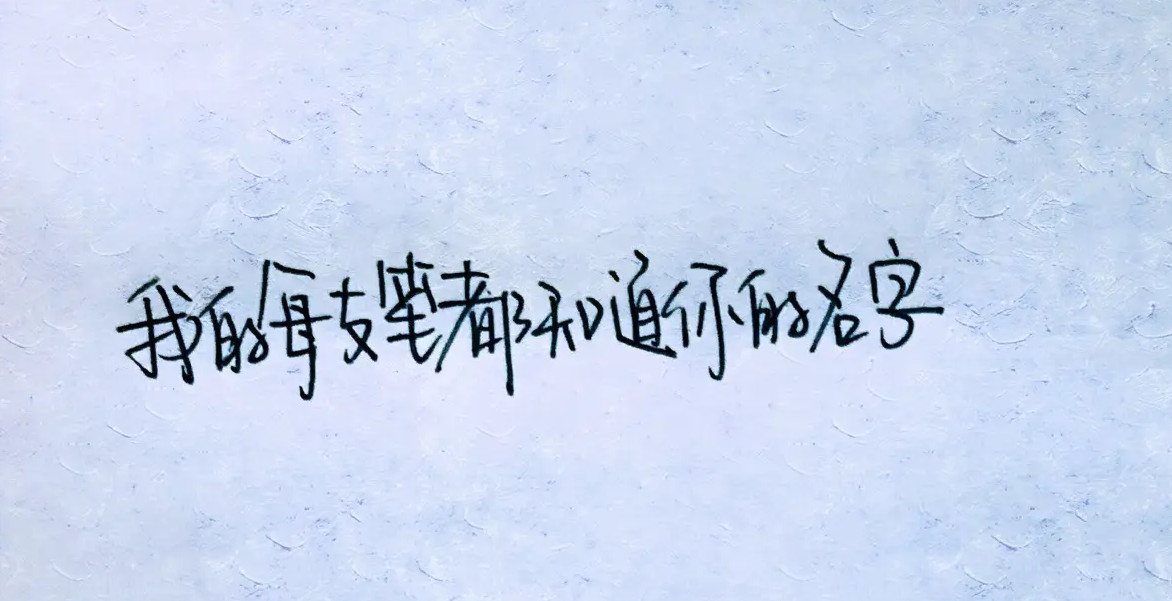 我的每支笔都知道你的名字